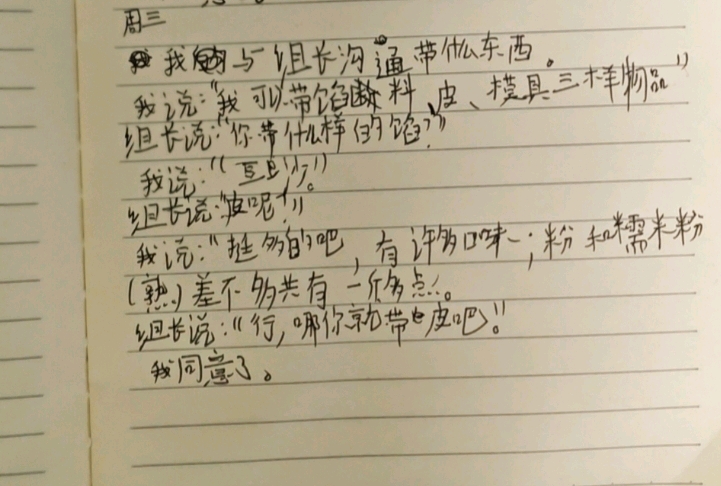 周三
我与组长沟通带什么东西。
我说:“我可以带馅料、皮、模具三样物品”
组长说:“你带什么样的馅?”
我说:“豆沙。”
组长说:“皮呢!”
我说:“挺多的吧,有许多口味;粉和糯米粉
(熟)差不多共有一斤多点。
组长说:“行,哪你就带皮吧!”
我同意了。